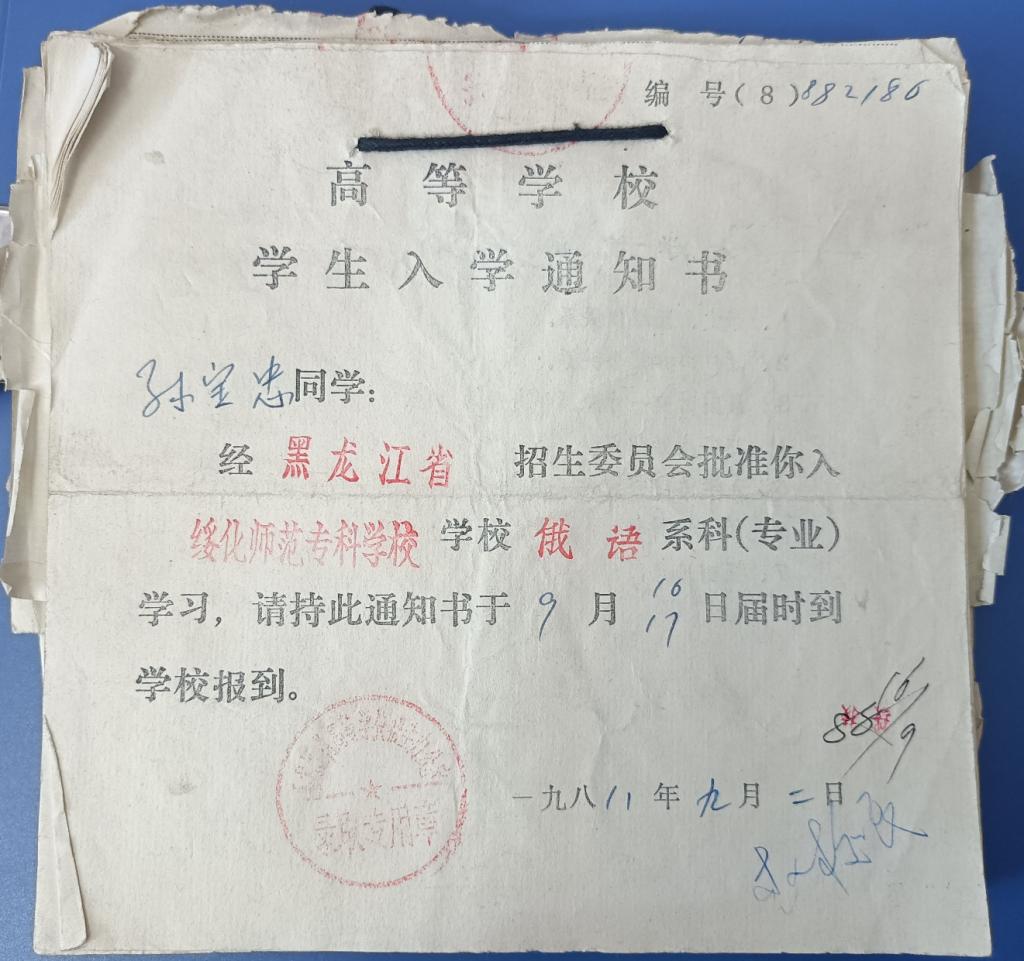 编 号(8)882186
高等学校
学生入学通知书
孙宝忠同学:
经 黑龙江省 招生委员会批准你入
绥化师范专科学校 学校 俄语 系科(专业)
学习,请持此通知书于 9 月 16 17 日届时到
学校报到。
88 16/9
一九八八年九月二日
录取专用章